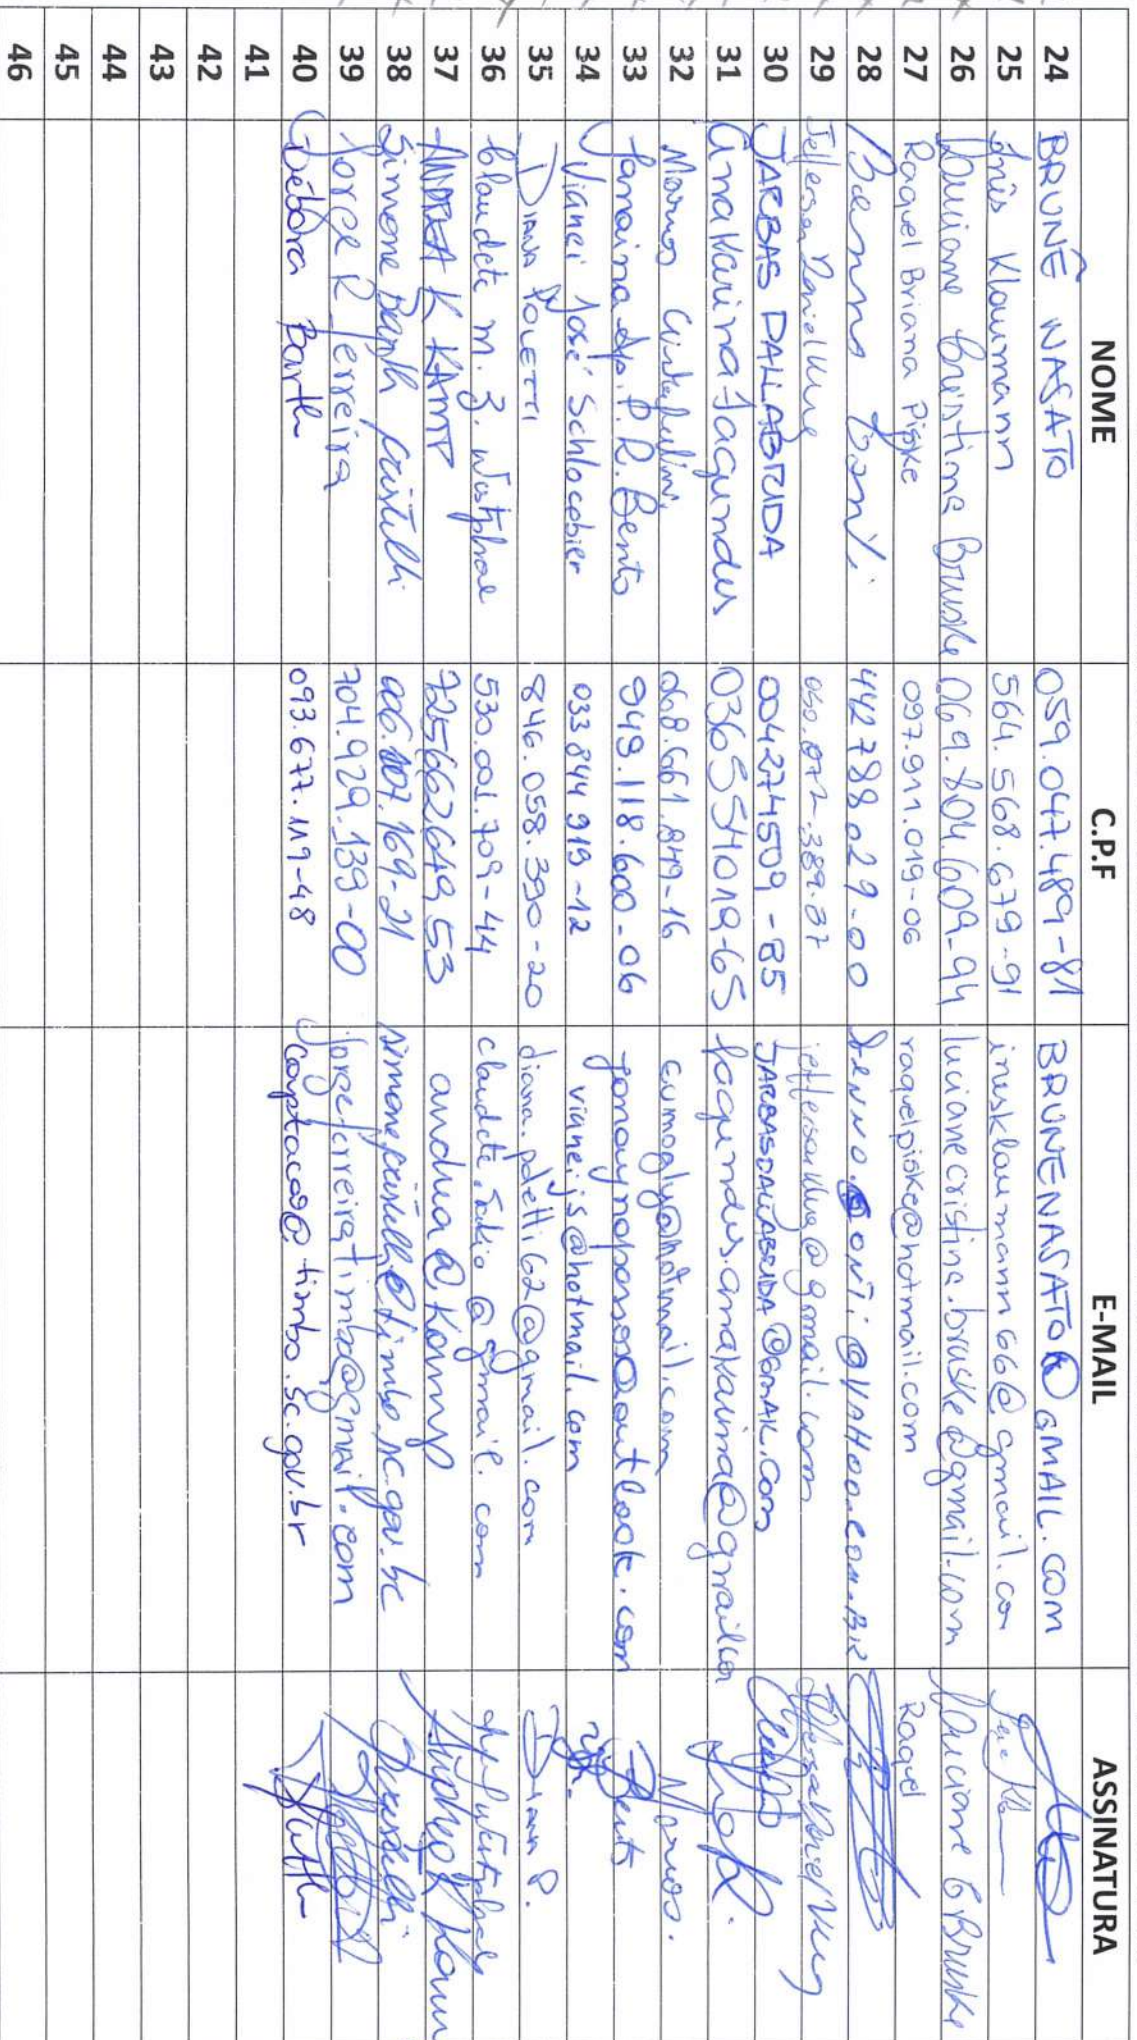 NOME C.P.F E-MAIL ASSINATURA
24 BRUNÊ NASATO 059.047.489-81 BRUNENASATO@GMAIL.COM
25 Inês Klaumann 564.568.679-91 inesklaumann66@gmail.co
26 Luciane Cristina Bruske 069.804.609-94 lucianecristina.bruske@gmail.com Luciane C Bruske
27 Raquel Briana Piske 097.911.019-06 raquelpiske@hotmail.com Raquel
28 442788029-00
29 Jefferson Daniel Kling @gmail.com
30 JARBAS DALLABRIDA 004274509-85 JARBASDALLABRIDA@GMAIL.COM
31 Ana Karina Fagundes 036554019-65 fagundes.anakarina@gmail.com
32 Marcos 068.661.849-16 Marcos.
33 Janaina Ap. P. R. Bento 949.118.600-06 Bento
34 Vianei José Schlocobier 033844919-12 vianeijs@hotmail.com
35 DIANA POLETTI 846.058.390-20 diana.poletti62@gmail.com DIANA P.
36 Claudete M. Z. Westphal 530.001.709-44 @gmail.com
37 ANDREA K KAMP 725662649 53
38 Simone 006.107.169-21
39 Jorge R Ferreira 704.929.139-00 jorgeferreiratimbo@gmail.com
40 Débora Barth 093.677.119-48 captacao@timbo.sc.gov.br
41
42
43
44
45
46